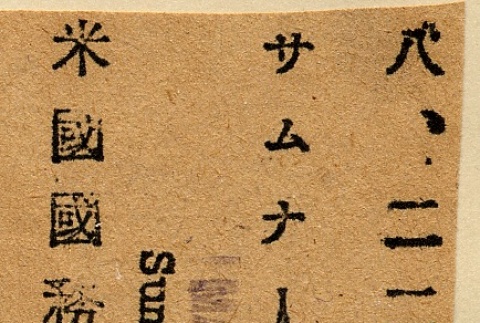 八、二一
サムナー
Sun
米國國務